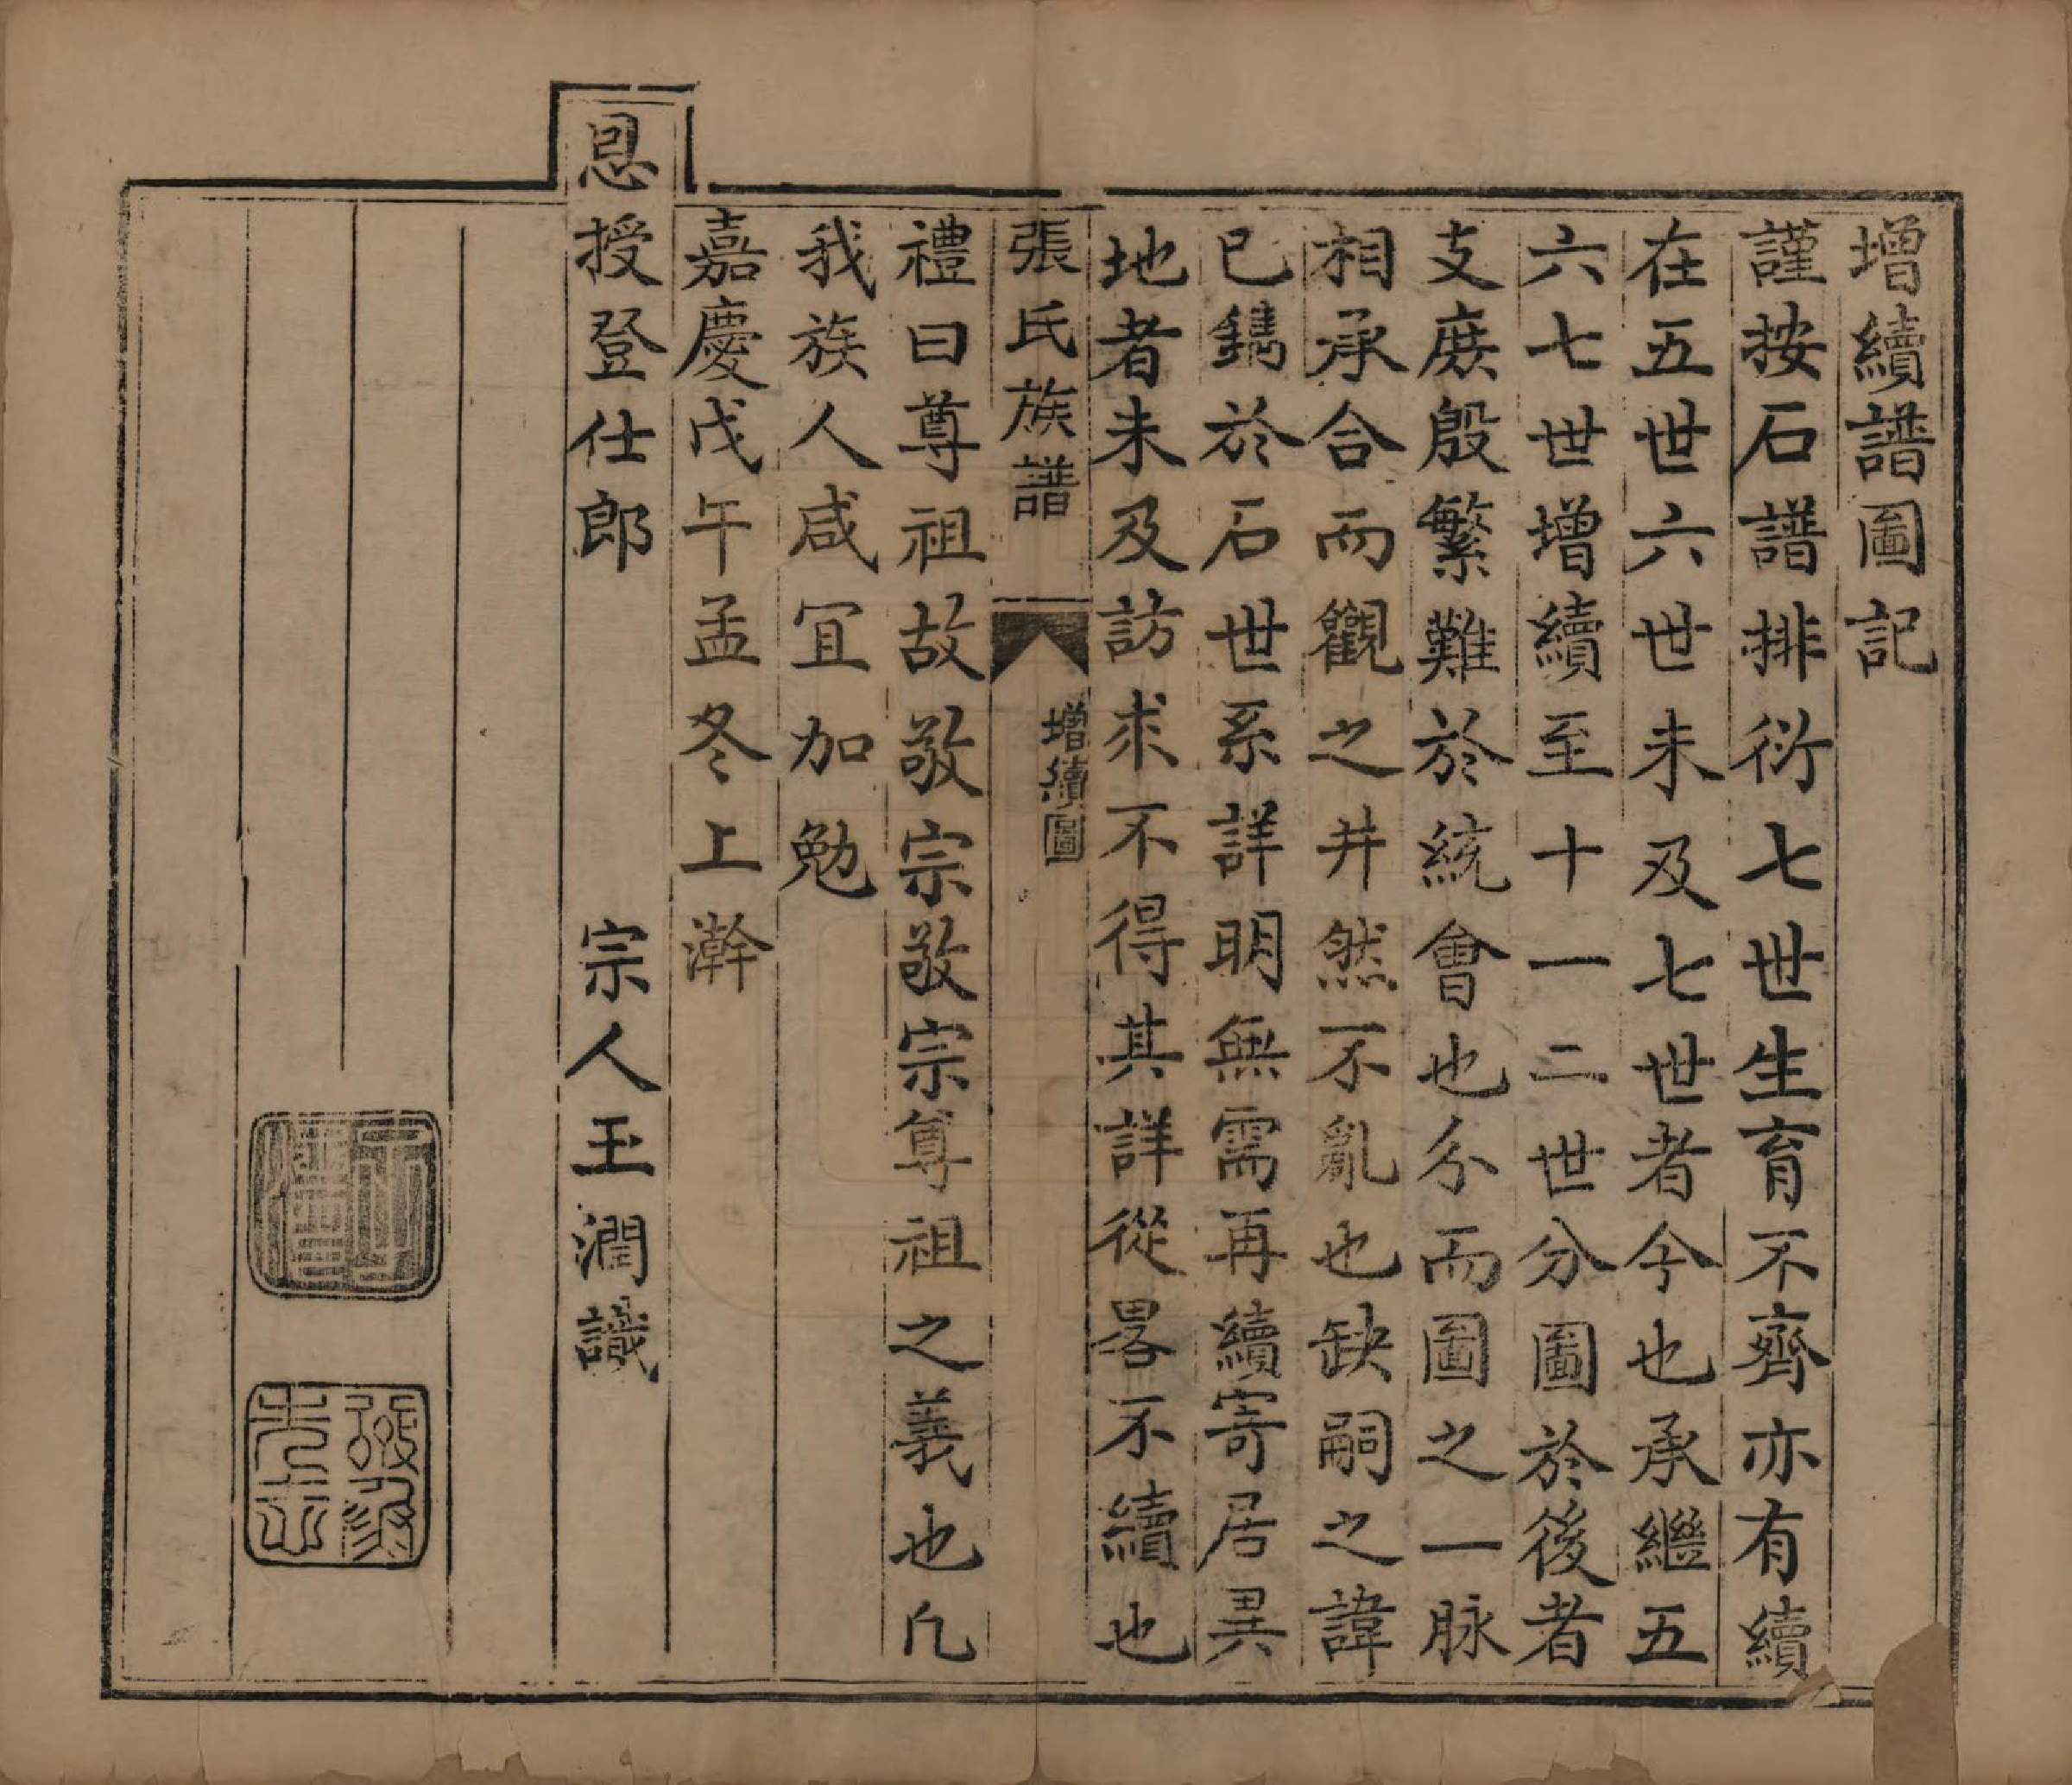 增續譜圖記
謹按石譜排衍七世生育不齊亦有續
在五世六世未及七世者今也承繼五
六七世增續至十一二世分圖於後者
支庻殷繁難於統會也分而圖之一脉
相承合而觀之井然不亂也缺嗣之諱
已鐫於石世系詳明無需再續寄居異
地者未及訪求不得其詳從畧不續也
張氏族譜 增續圖
禮曰尊祖故敬宗敬宗尊祖之義也凢
我族人咸宜加勉
嘉慶戊午孟冬上澣
恩授登仕郎 宗人玉潤識